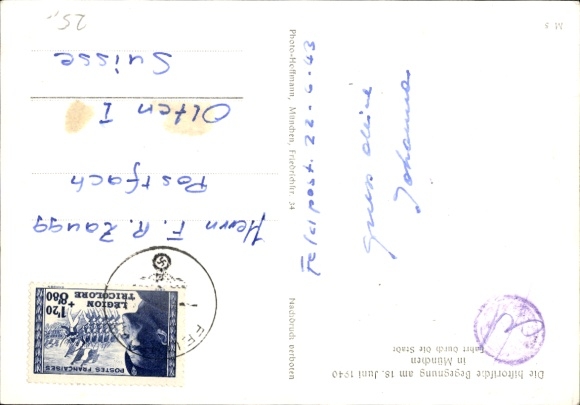 Die historische Begegnung am 18. Juni 1940
in München
Fahrt durch die Stadt
Feldpost. 22-6-43
Johanna
Photo-Hoffmann, München, Friedrichstr. 34
Nachdruck verboten
POSTES FRANÇAISES
LEGION
TRICOLORE
1F20
+ 8F80
Herrn F. R. Zaugg
Postfach
Olten I
Suisse
25,-
M 3